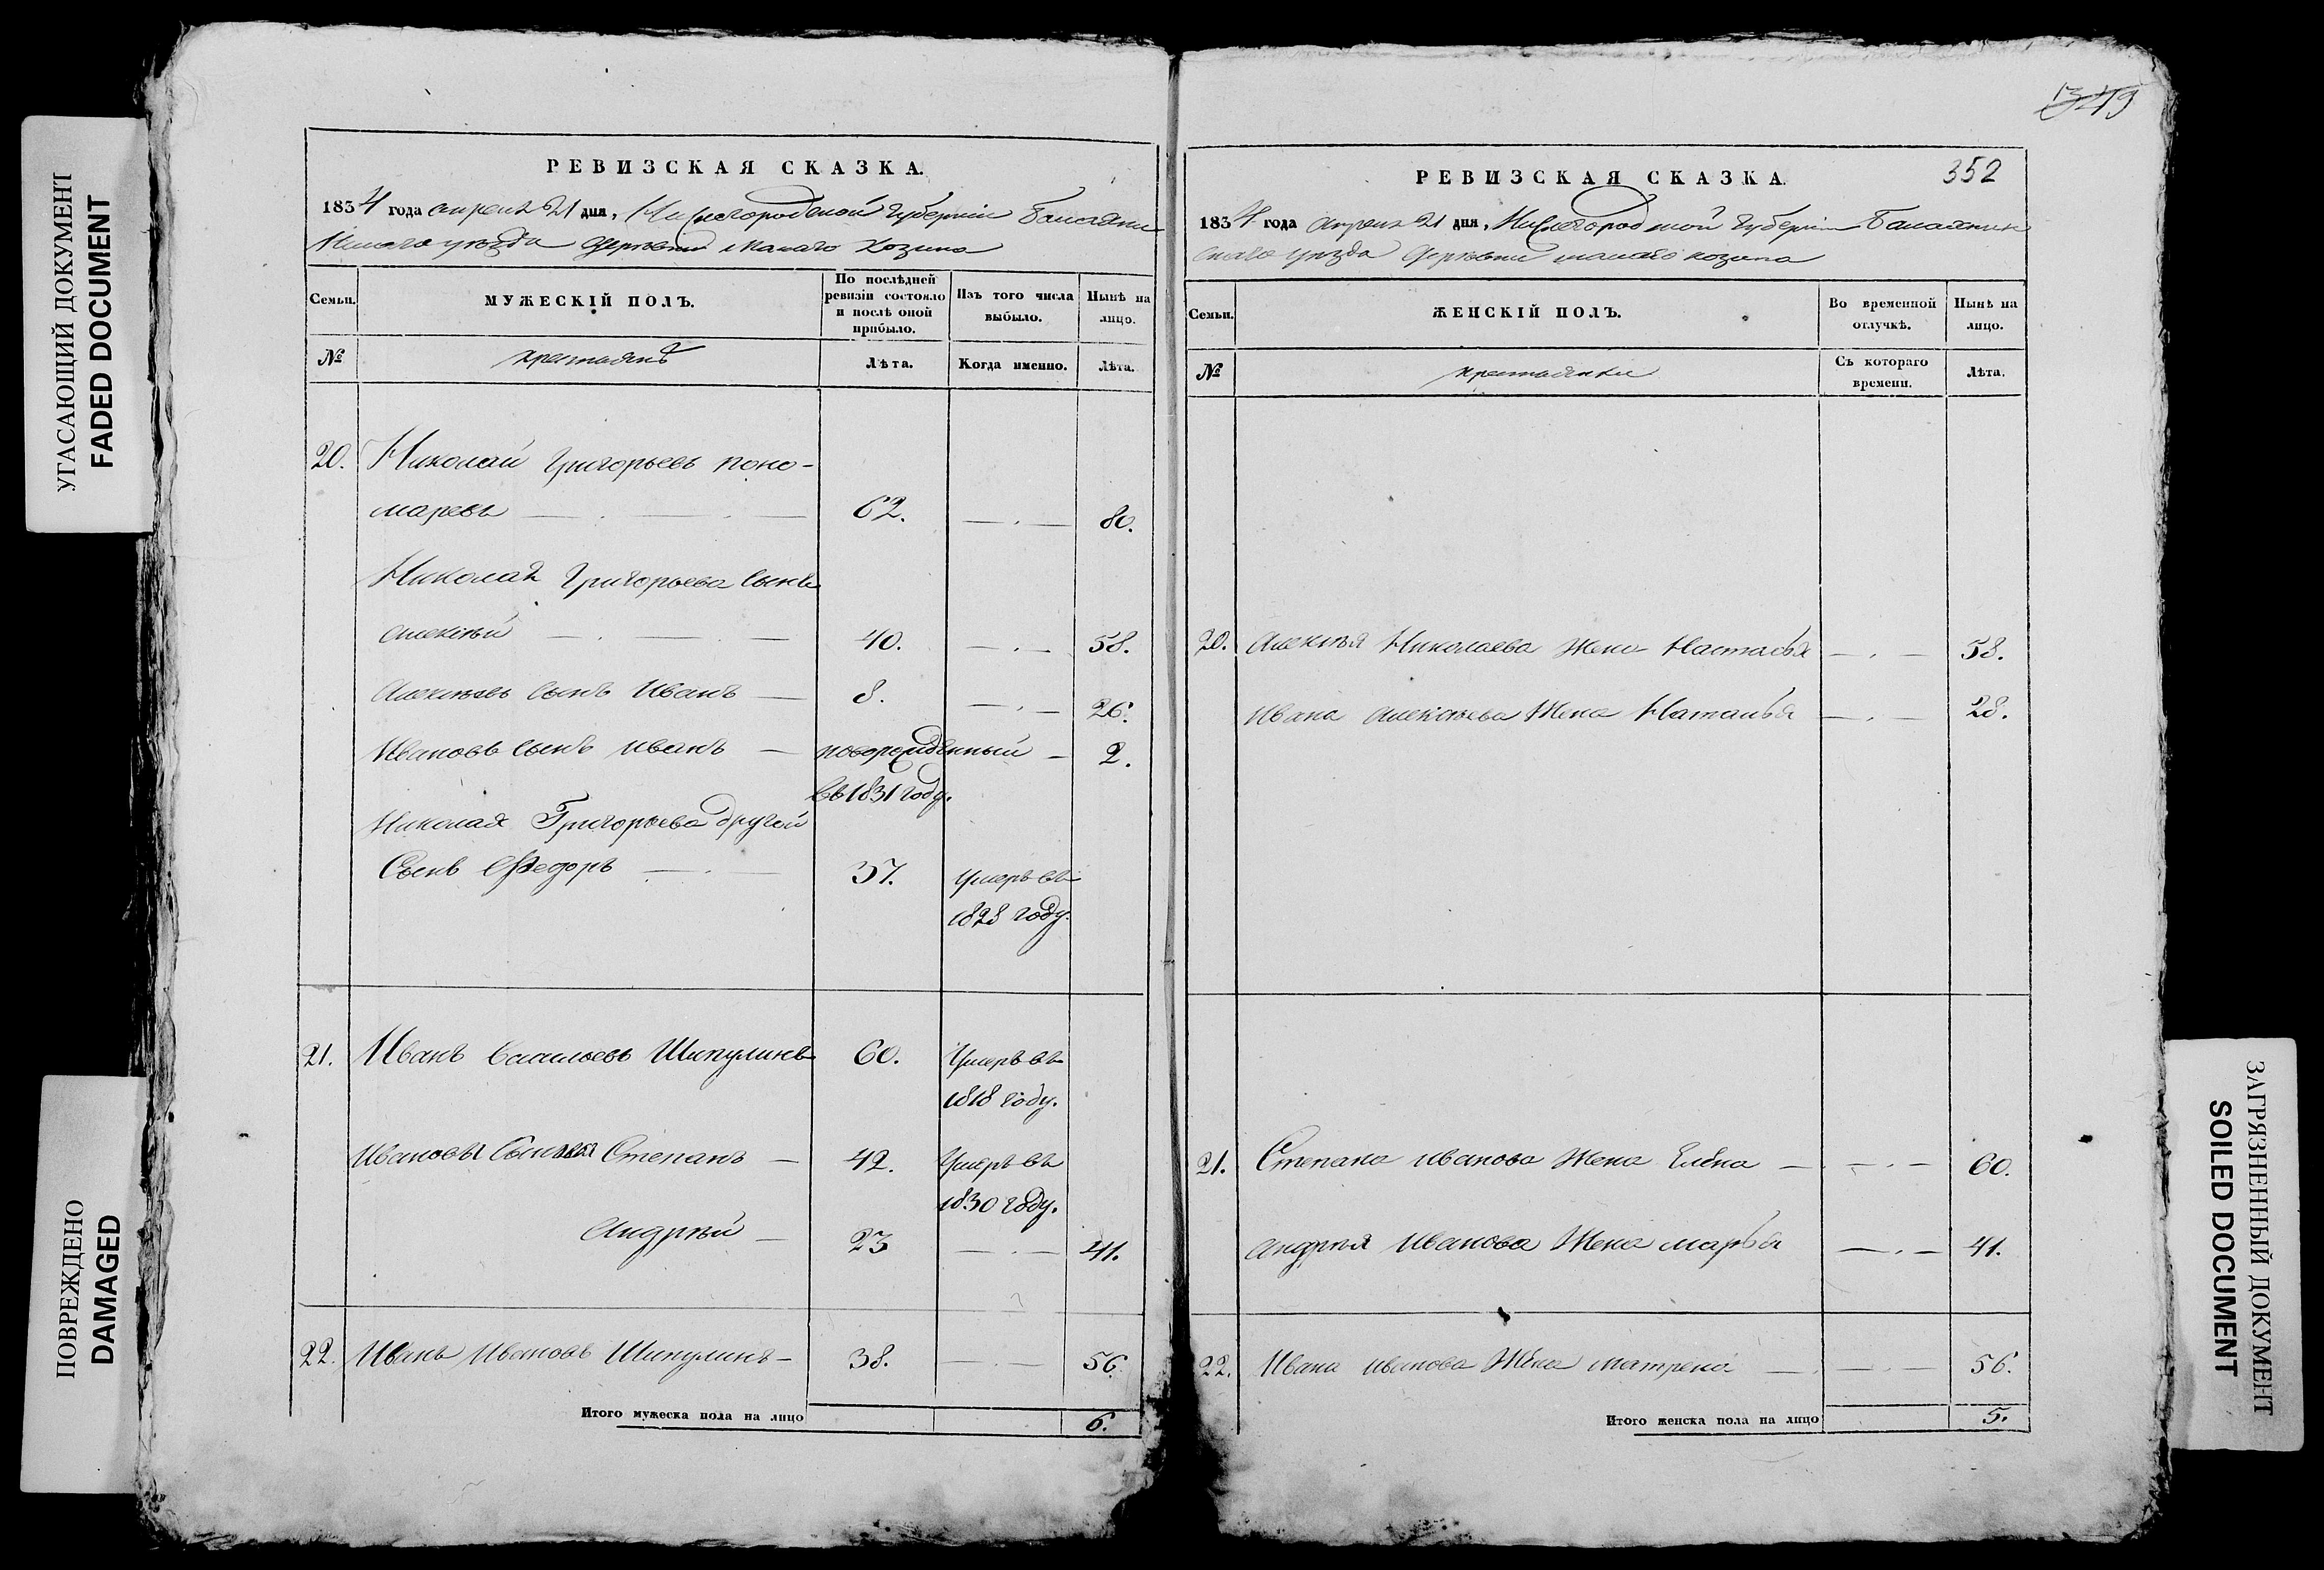 УГАСАЮЩИЙ ДОКУМЕНТ
FADED DOCUMENT
ПОВРЕЖДЕНО
DAMAGED
РЕВИЗСКАЯ СКАЗКА.
1834 года апреля 21 дня, Нижегородской Губернiи Балахни
нскаго уѣзда деревни Малаго Козина
Семьи.
МУЖЕСКІЙ ПОЛЪ.
По послѣдней ревизіи состояло и послѣ оной прибыло.
Изъ того числа выбыло.
Нынѣ на лицо.
№
крестьянъ
Лѣта.
Когда именно.
Лѣта.
20. Николай Григорьевъ поно-
маревъ — . — . — 62. — . — 80.
Николая Григорьева сынъ
алексѣй — . — . — 40. — . — 58.
Алексѣевъ сынъ Иванъ — 8. — . — 26.
Ивановъ сынъ иванъ — новорожденный — 2.
въ 1831 году.
Николая Григорьева другой
Сынъ Федоръ — . — 37. Умеръ въ
1828 году.
21. Иванъ Васильевъ Шипулинъ 60. Умеръ въ
1818 году.
Ивановы Сыновья Степанъ — 42. Умеръ въ
1830 году.
Андрѣй — 23 — . — 41.
22. Иванъ Ивановъ Шипулинъ — 38. — . — 56.
Итого мужеска пола на лицо 6.
349
352
РЕВИЗСКАЯ СКАЗКА.
1834 года апреля 21 дня, Нижегородской Губернiи Балахнин
скаго уѣзда деревни малаго козина
Семьи.
ЖЕНСКІЙ ПОЛЪ.
Во временной отлучкѣ.
Нынѣ на лицо.
№
крестьянки
Съ котораго времени.
Лѣта.
20. Алексѣя Николаева жена Настасья — . — 58.
Ивана алексѣева Жена Наталья — . — 28.
21. Степана иванова Жена Елена — — . — 60.
Андрѣя иванова Жена марья — . — 41.
22. Ивана иванова Жена матрена — — . — 56.
Итого женска пола на лицо 5.
ЗАГРЯЗНЕННЫЙ ДОКУМЕНТ
SOILED DOCUMENT